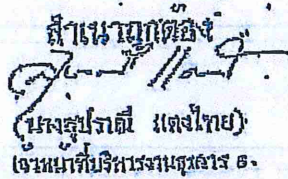 สำเนาถูกต้อง
(นางสุปราตี แตงไทย)
เจ้าหน้าที่บริหารงานธุรการ 6